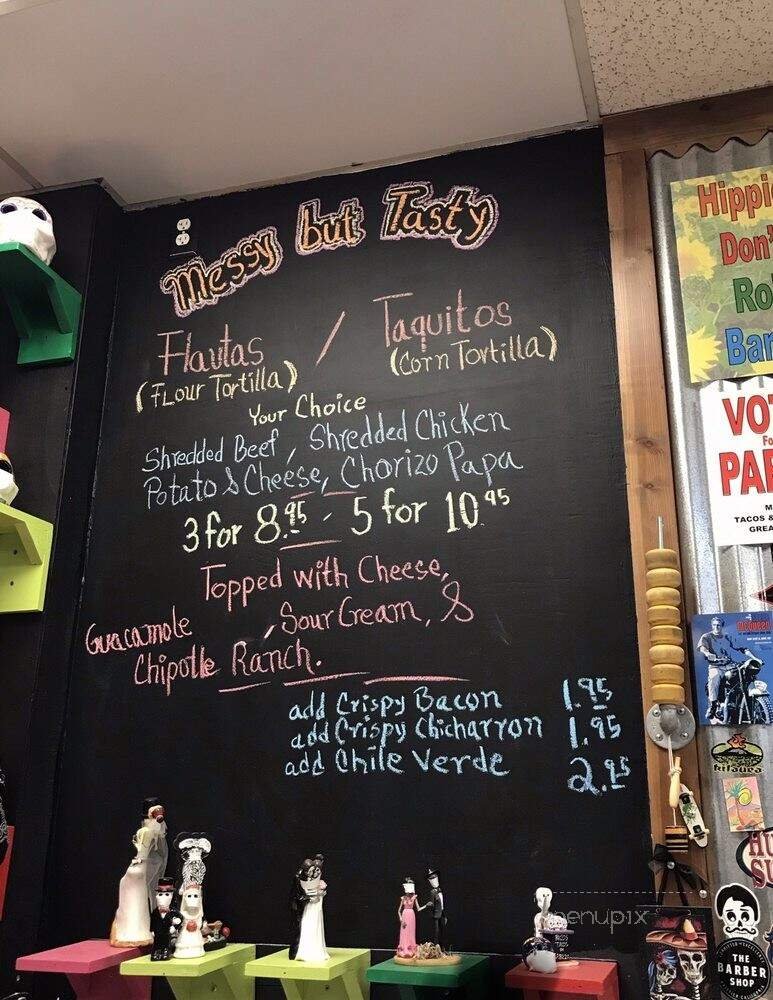 Messy but Tasty
Flautas / Taquitos
(Flour Tortilla) (Corn Tortilla)
Your Choice
Shredded Beef, Shredded Chicken
Potato & Cheese, Chorizo Papa
3 for 8.95 - 5 for 10.95
Topped with Cheese,
Guacamole, Sour Cream, &
Chipotle Ranch.
add Crispy Bacon 1.95
add Crispy Chicharron 1.95
add Chile Verde 2.95
Hippi
Don'
Ro
Bar
VOT
PAR
TACOS &
GREA
McQueen
Kilauea
HU
SU
THE
BARBER
SHOP
menupix